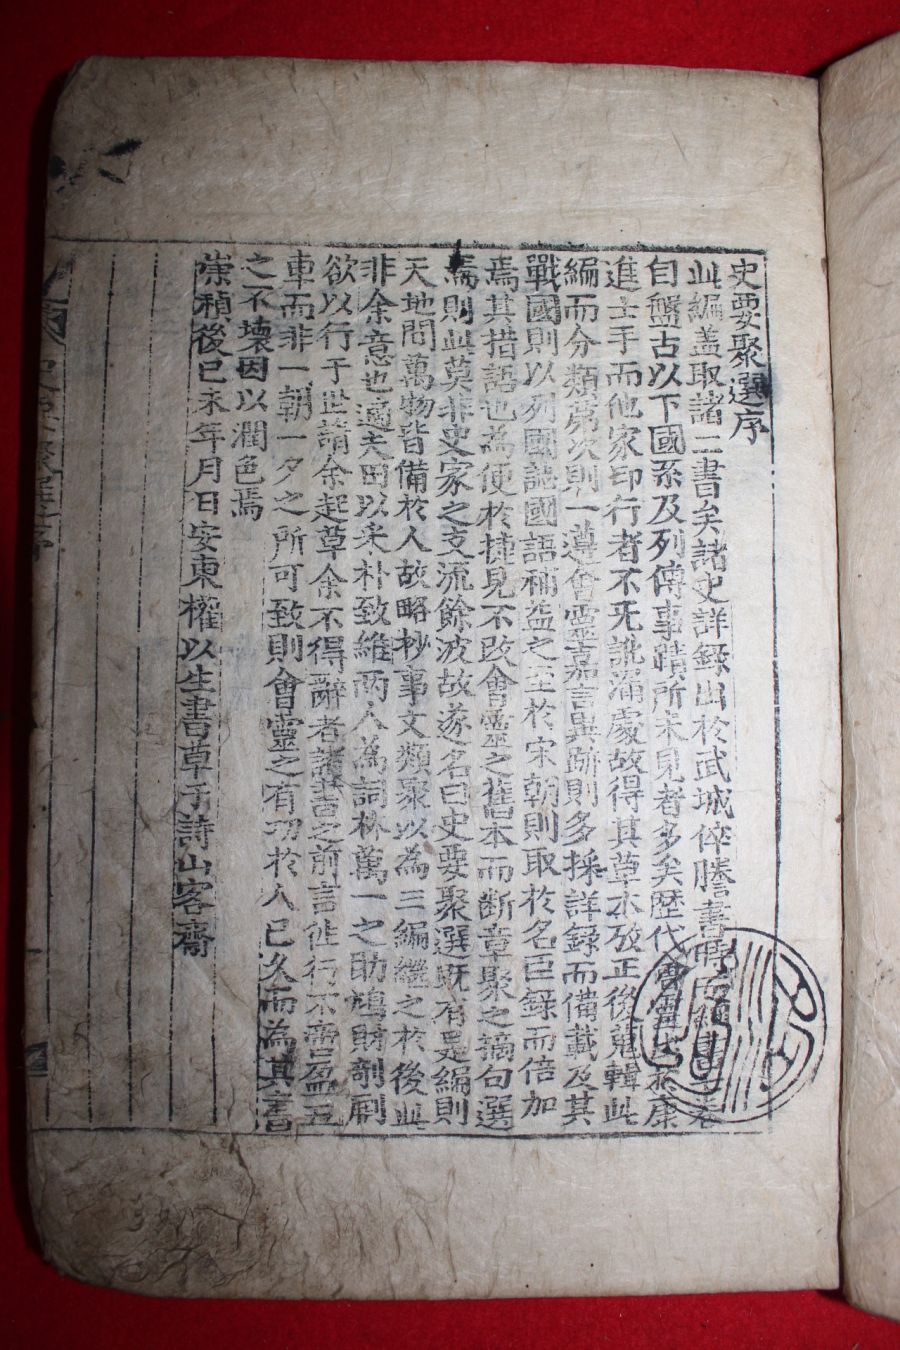 史要聚選序
此編盖取諸二書矣諸史詳錄出於武城倅謄書時
自盤古以下國系及列傳事蹟所未見者多矣歷代會靈出於康
進士手而他家印行者不旡訛漏處故得其草本攷正後蒐輯此
編而分類第次則一遵會靈嘉言異跡則多採詳錄而備載及其
戰國則以列國誌國語補益之至於宋朝則取於名臣錄而倍加
焉其措語也為便於捷見不改會靈之舊本而断章聚之摘句選
焉則此莫非史家之支流餘波故遂名曰史要聚選旣有是編則
天地間萬物皆備於人故略抄事文類聚以為三編繼之於後此
非余意也適夫田以采朴致維兩人為詞林萬一之助鳩財剞劂
欲以行于世請余起草余不得辭者諸書之前言徃行不啻盈五
車而非一朝一夕之所可致則會靈之有功於人已久而為其書
之不壞因以潤色焉
崇禎後己未年月日安東權以生書草于詩山客齋
史要聚選序